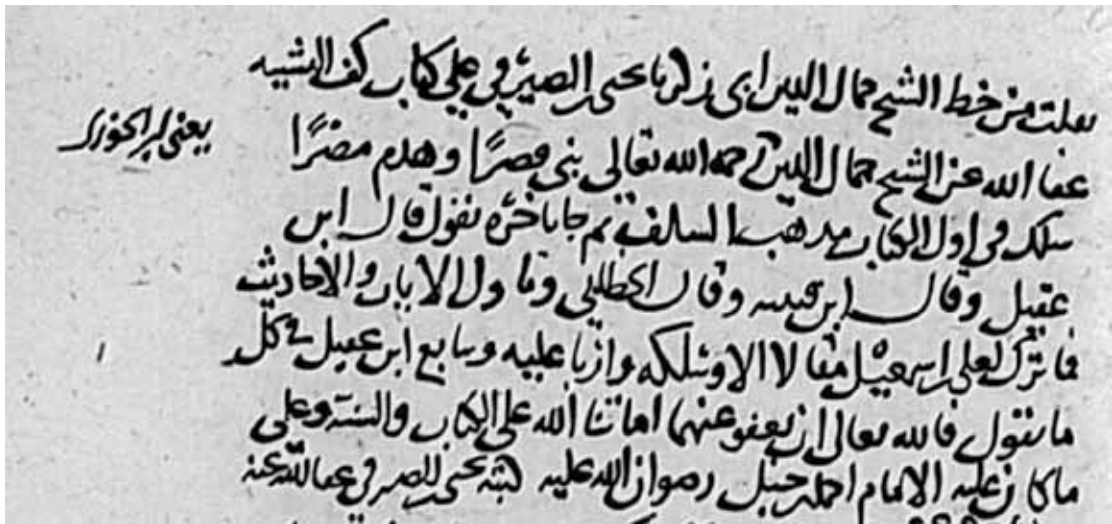 نقلت من خط الشيخ جمال الدين ابى زكريا يحيى الصيرفي على كتاب كف التشبيه
يعنى لابن الجوزى
عفا الله عن الشيخ جمال الدين رحمه الله تعالى بنى قصرًا وهدم مصرًا
سلك فى اول الكتاب مذهب السلف ثم جا باخره يقول قال ابن
عقيل وقال ابن قتيبه وقال الخطابى وتاول الايات والاحاديث
فما ترك لعلى بن اسمعيل مقالا الا وسلكه وازبا عليه وتابع ابن عقيل فى كل
ما يقول فالله تعالى ان يعفو عنهما اماتنا الله على الكتاب والسنة وعلى
ما كان عليه الامام احمد بن حنبل رضوان الله عليه كتبه يحيى بن الصيرفى عفا الله عنه